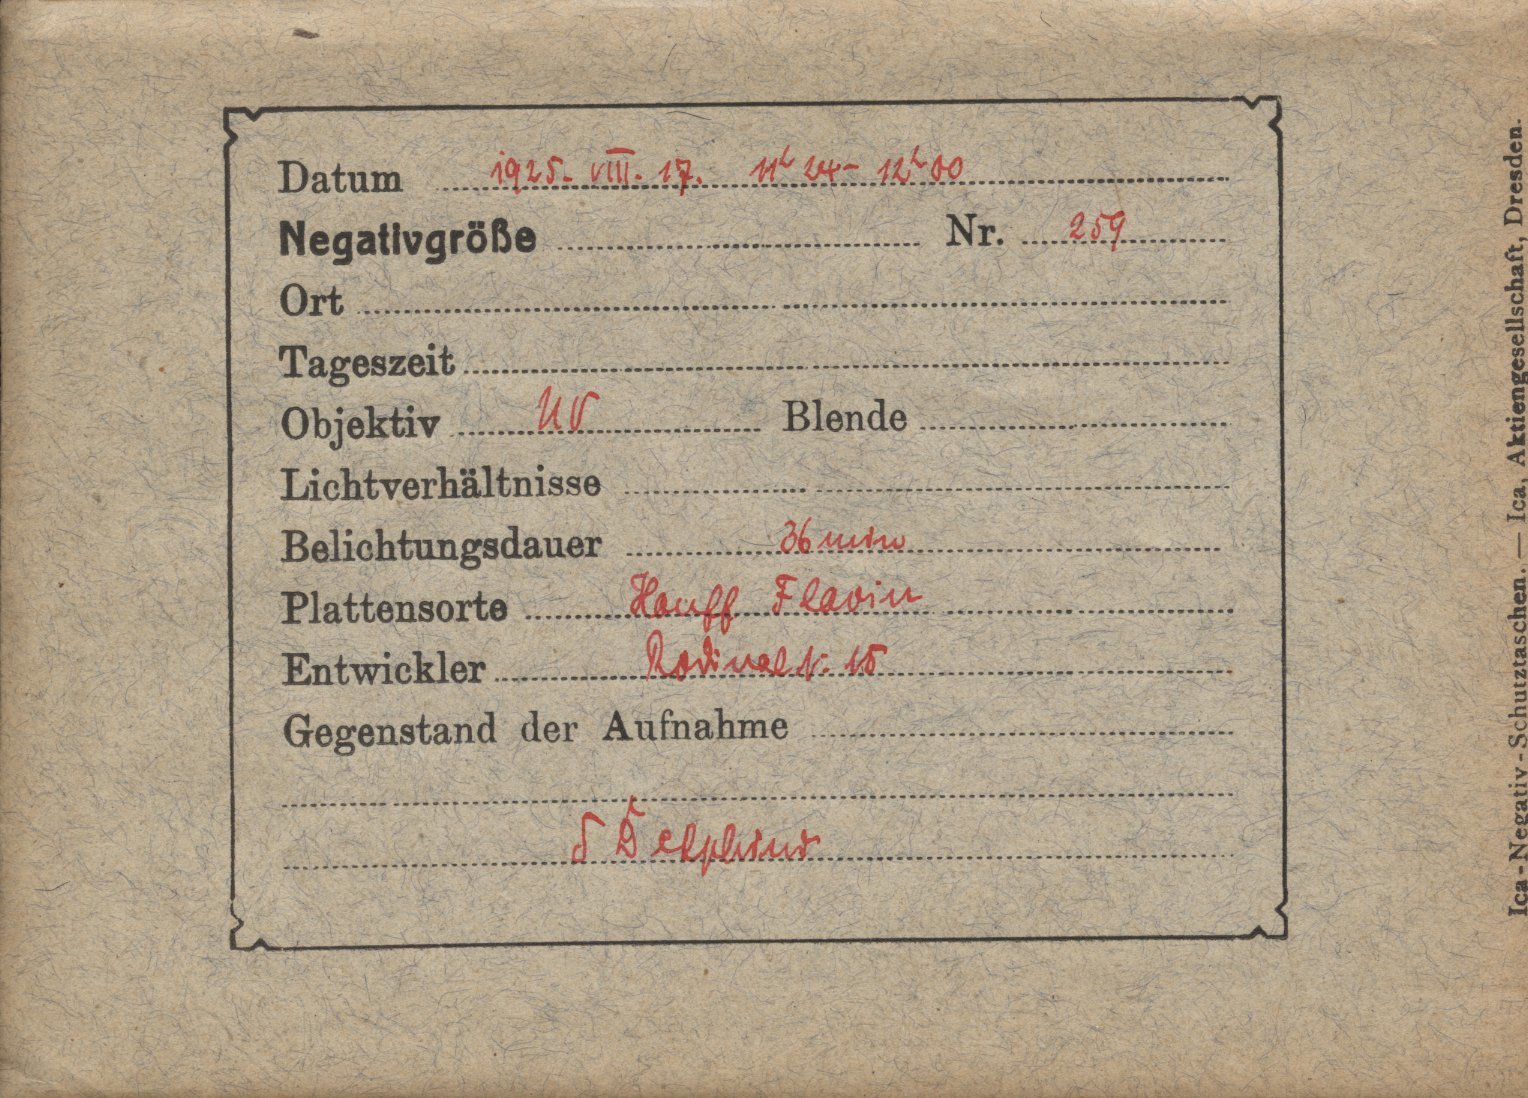 Datum 1925. VIII. 17. 11h 24 - 12h 00
Negativgröße Nr. 259
Ort
Tageszeit
Objektiv UV Blende
Lichtverhältnisse
Belichtungsdauer 36 min
Plattensorte Hauff Flavin
Entwickler Rodinal 1:15
Gegenstand der Aufnahme
δ Delphini
Ica-Negativ-Schutztaschen. — Ica, Aktiengesellschaft, Dresden.